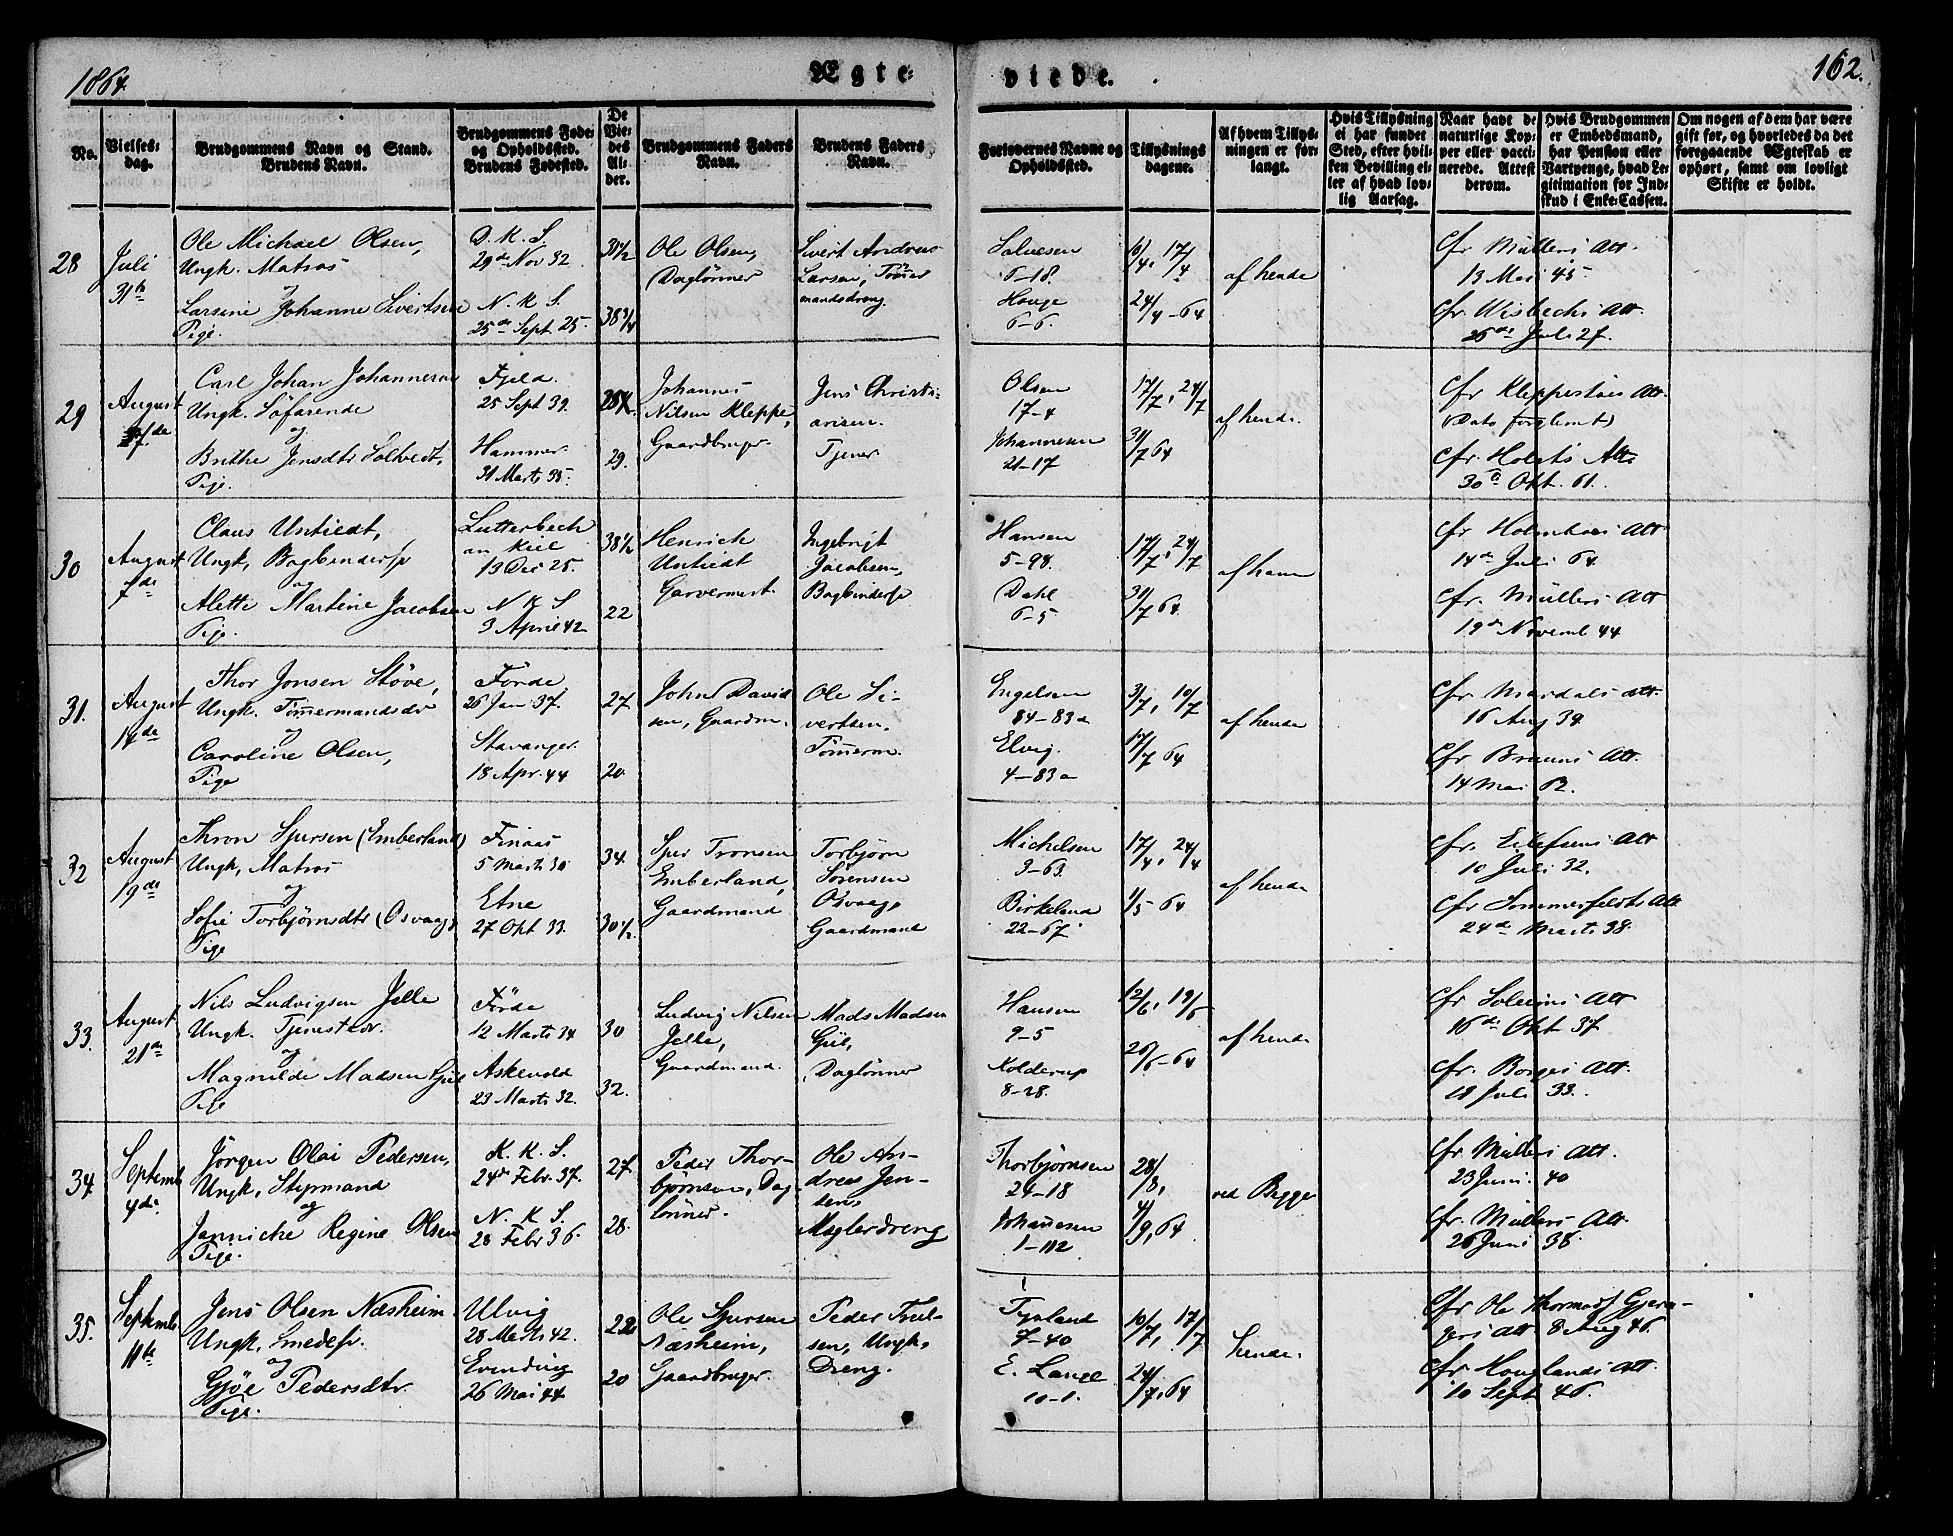 1864.
Ægte-
viede.
162.
No.
Vielses-
dag.
Brudgommens Navn og Stand.
Brudens Navn.
Brudgommens Føde-
og Opholdssted.
Brudens Fødested.
De
Vie-
des
Al-
der.
Brudgommens Faders
Navn.
Brudens Faders
Navn.
Forlovernes Navne og
Opholdssted.
Tillysnings
dagene.
Af hvem Tillys-
ningen er for-
langt.
Hvis Tillysning
ei har fundet
Sted, efter hvil-
ken Bevilling el-
ler af hvad lov-
lig Aarsag.
Naar havt de
naturlige Kop-
per eller vacci-
nerede. Attest
derom.
Hvis Brudgommen
er Embedsmand,
har Pension eller
Vartpenge, hvad Le-
gitimation for Ind-
skud i Enke-Cassen.
Om nogen af dem har være
gift før, og hvorledes da det
foregaaende Ægteskab er
ophørt, samt om lovligt
Skifte er holdt.
28
Juli
31te
Ole Michael Olsen,
Ungk. Matros
og
Larsine Johanne Sivertsen
Pige.
D. K. S.
29de Nov 32
N. K. S.
25de Sept. 25.
31 1/2
38 3/4
Ole Olsen,
Daglønner
Sivert Andreas
Larsen, Tømmer
mandsdreng.
Salvesen
6-18.
Hauge
6-6.
10/4, 17/4
24/4-64
af hende
Cfr Müllers Att.
13 Mai 45.
Cfr. Wisbechs Att.
26de Juli 27.
29
August
7de
Carl Johan Johannesen
Ungk. Søfarende
og
Brithe Jensdtr Soltvedt,
Pige.
Fjeld.
25 Sept 39.
Hammer
31 Marts 35.
29.
Johannes
Nilsen Kleppe,
Gaardbruger.
Jens Christi-
ansen.
Tjener
Olsen
17-4
Johannesen
21-17
17/7, 24/7
31/7 64
af hende.
Cfr Kleppestøes Att.
(Dato forglemt)
Cfr. Holsts Att.
30te Okt. 61.
30
August
7de
Claus Untiedt,
Ungk, Bogbindersv
og
Alette Martine Jacobsen
Pige.
Lutterbech
an Kiel
13 Dec 25.
N K S
3 April 42
38 1/2
22
Henrich
Untiedt
Garvermest.
Ingebrigt
Jacobsen,
Bogbindersv
Hansen
5-98.
Dahl
6-5
17/7, 24/7
31/7 64.
af ham
Cfr Holmboes Att
14de Juli 64.
Cfr. Müllers Att
19de Novemb 44
31.
August
14de
Thor Jonsen Støve,
Ungk. Tømmermandsdr
og
Caroline Olsen,
Pige
Førde,
26 Jan 37.
Stavanger.
18 Apr. 44
27
20.
John David
sen, Gaardm.
Ole Si-
vertsen.
Tømmerm.
Engelsen
84-83a
Elvig.
4-83a
3/7, 10/7
17/7 64
af hende
Cfr. Mardals Att.
16 Aug 39.
Cfr Bruuns Att.
14 Mai 62.
32
August
19de
Thron Sjursen (Emberland)
Ungk, Matros
og
Sofie Torbjørnsdtr (Osvaag)
Pige
Finaas
5 Marts 30
Etne
27 Okt 33.
34.
30 1/2.
Sjur Tronsen
Emberland,
Gaardmand
Torbjørn
Sørensen
Osvaag,
Gaardmand
Michelsen
3-63.
Birkeland
22-67
17/4, 24/4
1/5 64
af hende
Cfr. Eilefsens Att
10 Juli 32.
Cfr Sommerfeldts Att
24de Marts 38.
33.
August
21de
Nils Ludvigsen Jelle
Ungk. Tjenestedr.
og
Magnilde Madsen Gjil
Pige
Førde
12 Marts 34
Askevold
23 Marts 32.
30
32.
Ludvig Nilsen
Jelle,
Gaardmand.
Mads Madsen
Gjil,
Daglønner
Hansen
9-5
Kolderup
8-28.
12/6, 19/6
26/6-64
af hende
Cfr Solums Att
16de Okt 37
Cfr. Borges Att.
18 Juli 33.
34.
Septemb
4de
Jørgen Olai Pedersen,
Ungk, Styrmand
og
Jannicke Regine Olsen
Pige.
K. K. S.
24de Febr. 37.
N. K. S.
28 Febr 36.
27.
28.
Peder Thor-
bjørnsen, Dag-
lønner.
Ole An-
dreas Jen-
sen,
Møglerdreng
Thorbjørnsen
24-18
Johannesen
1-112
28/8,
4/9, 64
ved Begge
Cfr Müllers Att.
23 Juni. 40
Cfr. Müllers Att.
26 Juni 38.
35.
Septemb
11te
Jens Olsen Næsheim.
Ungk, Smedesv.
og
Gjøe Pedersdtr.
Pige.
Ulvig
28 Marts 42.
Evindvig
26 Mai 44
22
20
Ole Sjursen
Næsheim,
Gaardbruger.
Peder Troel-
sen, Ungk,
Dreng.
Tysland
7-40
E. Lange
10-1.
10/7, 17/7
24/7, 64
hende.
Cfr Ole Thormods Gjera-
gers Att 8 Aug 46.
Cfr Houglands Att.
10 Sept 46.